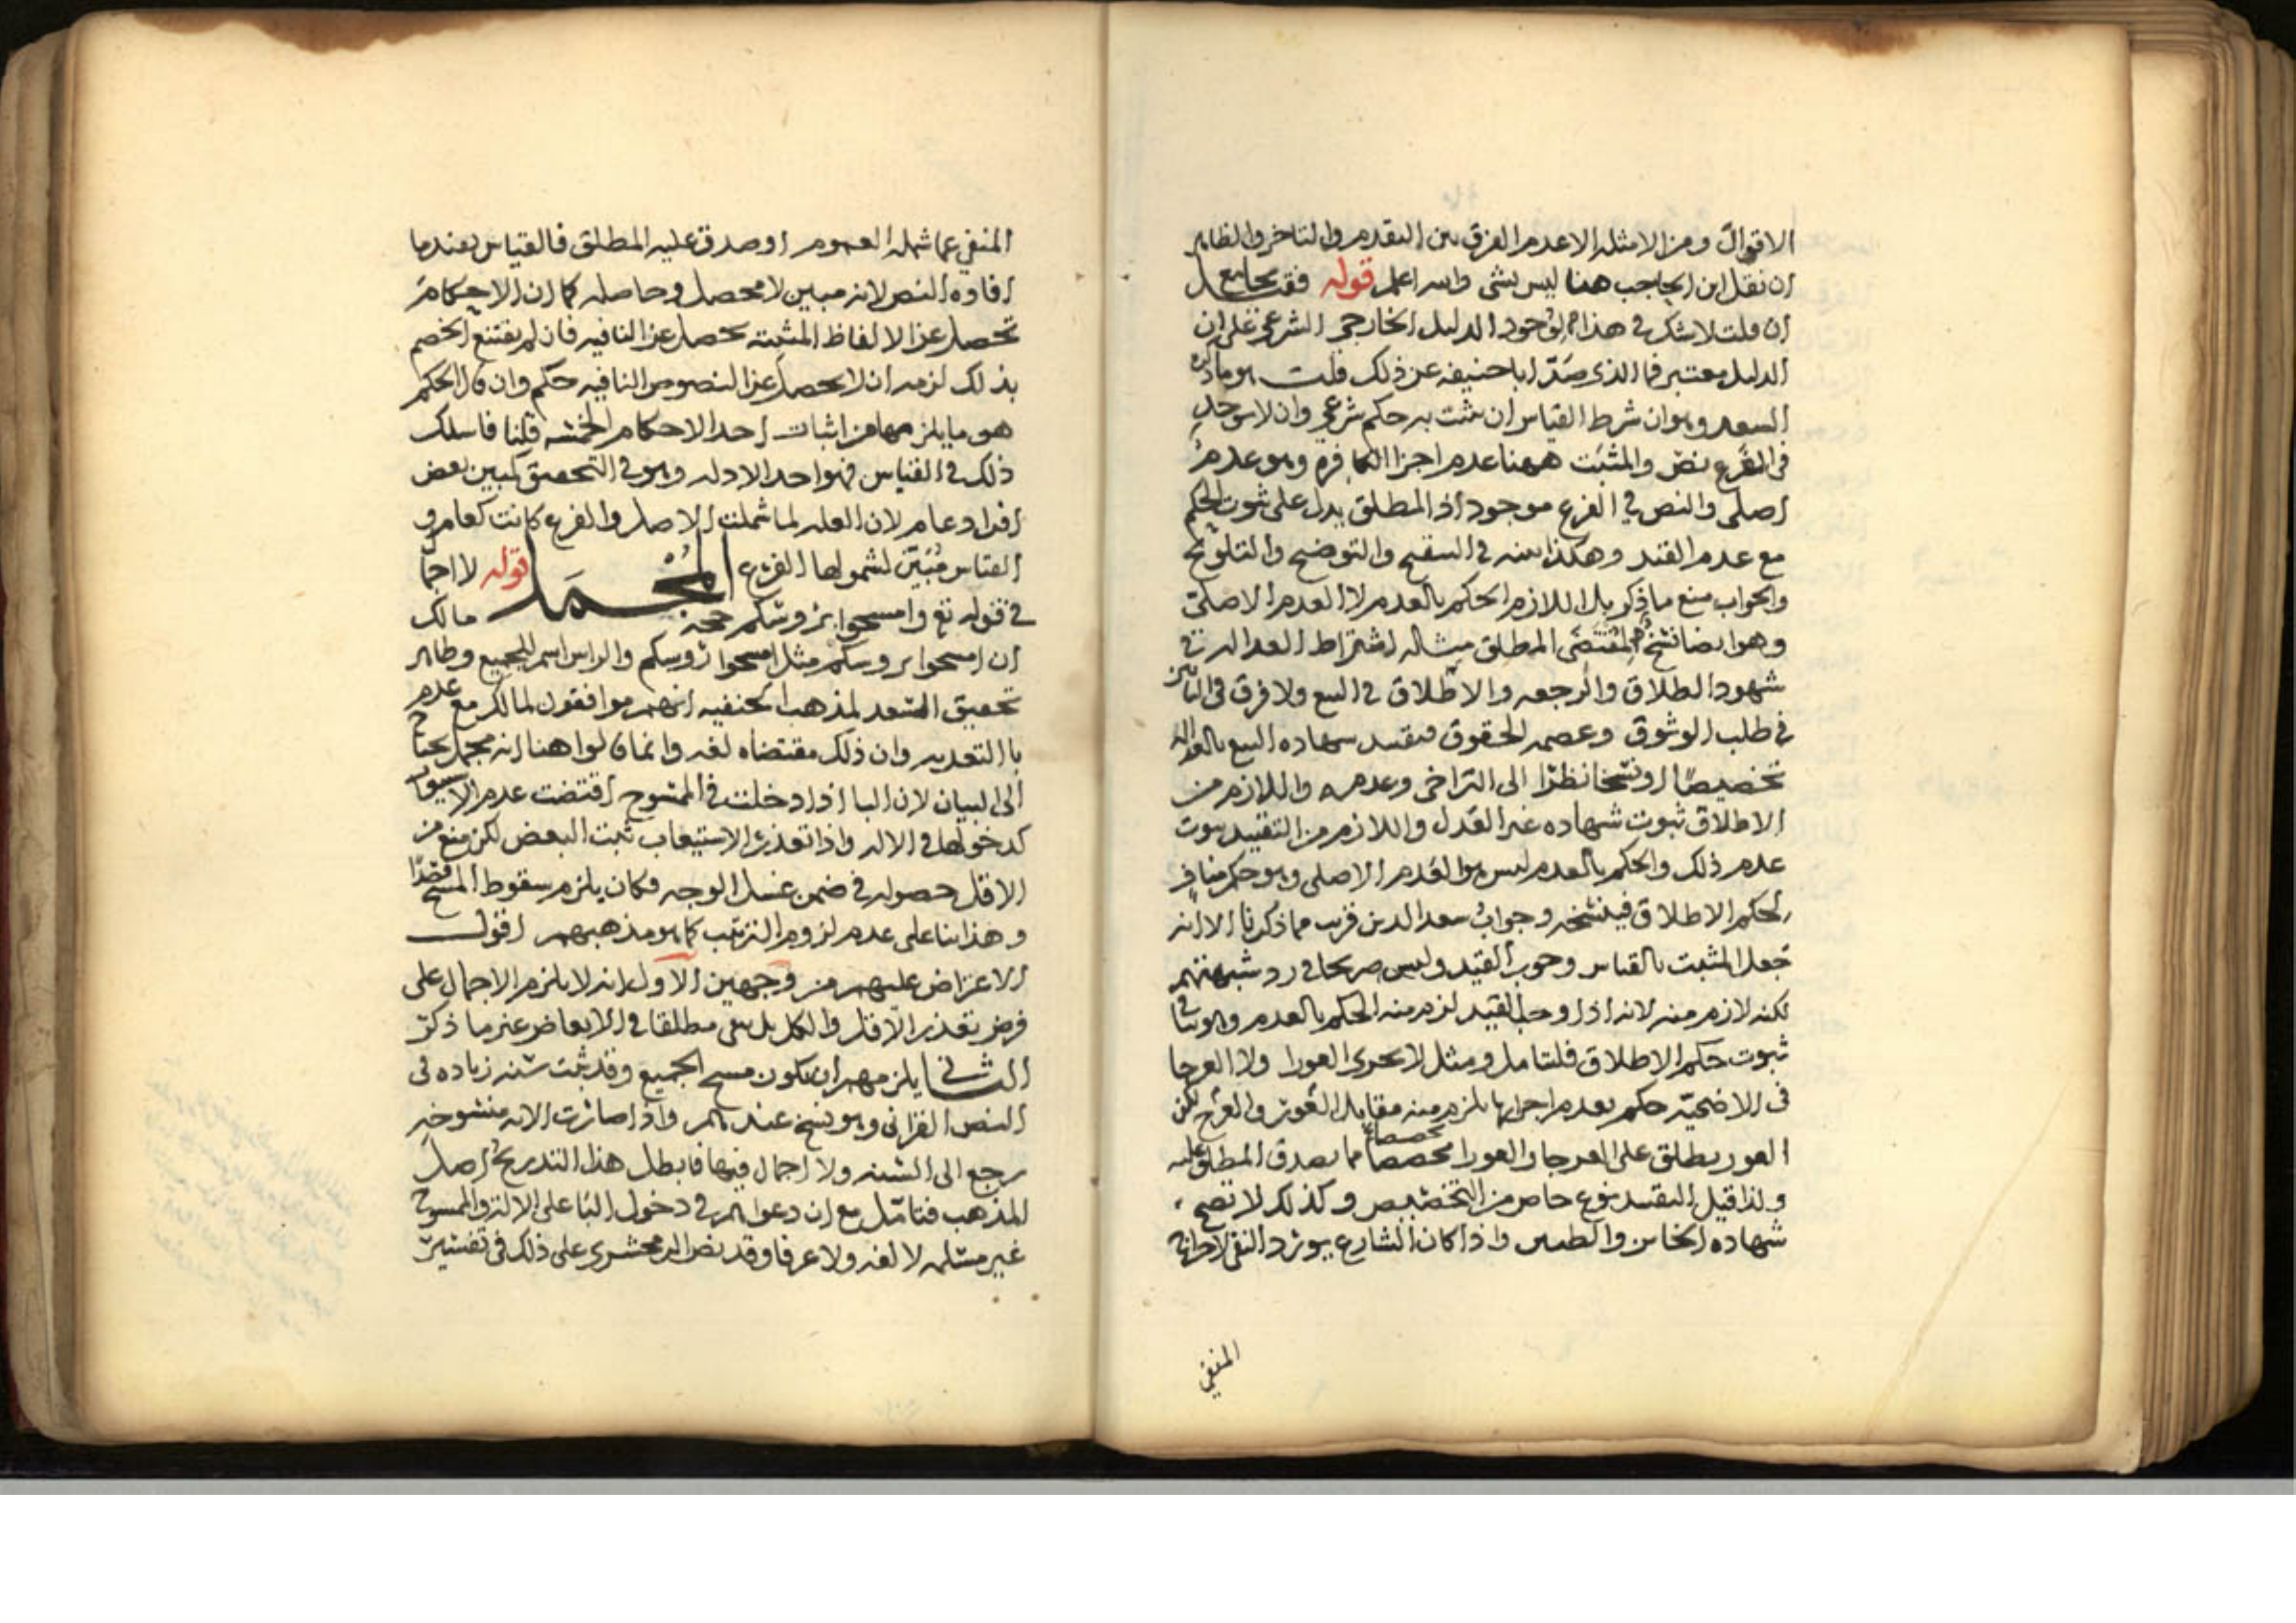 الاقوال ومن الامثله الا عدم الفرق بين التقدم والتاخر والظاهر
ان نقل ابن الحاجب هنا ليس بشى والله اعلم قوله فقس بجامع
ان قلت لا شك في هذا لوجود الدليل الخارجي الشرعي على ان
الدليل معتبر فما الذي صد ابا حنيفه عن ذلك قلت هو ما ذكره
السعد وهو ان شرط القياس ان يثبت به حكم شرعي وان لا يوجد
في الفرع نص والمثبت ههنا عدم اجزا الكافره وهو عدم
اصلي والنص في الفرع موجود اذ المطلق يدل على ثبوت الحكم
مع عدم القيد وهكذا في التنقيح والتوضيح والتلويح
والجواب منع ما ذكر بل اللازم الحكم بالعدم لا العدم الاصلي
وهو ايضا نسخ لمقتضى المطلق مثاله اشتراط العداله في
شهود الطلاق والرجعه والاطلاق في البيع ولا فرق في
في طلب الوثوق وعصمه الحقوق فتقيد شهاده البيع بالعداله
تخصيصا او نسخا نظرا الى التراخي وعدمه واللازم من
الاطلاق ثبوت شهاده غير العدل واللازم من التقييد ثبوت
عدم ذلك والحكم بالعدم ليس هو العدم الاصلي وهو حكم مناف
لحكم الاطلاق فينسخه وجواب سعد الدين قريب مما ذكرنا الا انه
جعل المثبت بالقياس وجوب القيد وليس صريحا في رد شبهتهم
لكنه لازم منه لانه اذا وجب القيد لزم منه الحكم بالعدم وهو
ثبوت حكم الاطلاق فليتامل ومثل لا تجزي العورا ولا العرجا
في الاضحيه حكم بعدم اجزايها يلزم منه مقابل العور والعرج لكن
العور يطلق على العرجا والعورا مخصصا مما يصدق المطلق عليه
ولذا قيل التقييد نوع خاص من التخصيص وكذلك لا تصح
شهاده الخاين والظنين واذا كان الشارع يورد النفي
المنفي
المنفي عما شمله العموم او صدق عليه المطلق فالقياس يفيد ما
افاده النص لانه مبين لا محصل وحاصله كما ان الاحكام
تحصل عن الالفاظ المثبته تحصل عن النافيه فان لم يقتنع الخصم
بذلك لزمه ان لا يحصل عن النصوص النافيه حكم وان قال الحكم
هو ما يلزم منها من اثبات احد الاحكام الخمسه قلنا فاسلك
ذلك في القياس فهو احد الادله وهو في التحقيق كمبين بعض
افراد عام لان العله لما شملت الاصل والفرع كانت كعام و
القياس مبين لشمولها الفرع المجمل قوله لا اجما
في قوله تع وامسحوا بروسكم حجه مالك
ان امسحوا بروسكم مثل امسحوا روسكم والراس اسم للجميع وظاهر
تحقيق السعد لمذهب الحنفيه انهم موافقون لمالك مع عدم
با التعديه وان ذلك مقتضاه لغه وانما قالوا هنا انه مجمل يحتاج
الى البيان لان البا اذا دخلت في الممسوح اقتضت عدم الاستيعاب
كدخولها في الاله واذا تعذر الاستيعاب ثبت البعض لكن منع من
الاقل حصوله في ضمن غسل الوجه فكان يلزم سقوط المسح قصدا
وهذا بنا على عدم لزوم الترتيب كما هو مذهبهم اقول
الاعتراض عليهم من وجهين الاول انه لا يلزم الاجمال على
فرض تعذر الاقل والكل بل يبقى مطلقا في الابعاض غير ما ذكر
الثاني يلزمهم ان يكون مسح الجميع وقد ثبت سنه زياده في
النص القراني وهو نسخ عندهم واذا صارت الايه منسوخه
رجع الى السنه ولا اجمال فيها فابطل هذا التدريج اصل
المذهب فتامل مع ان دعواهم في دخول البا على الاله والممسوح
غير مسلمه لا لغه ولا عرفا وقد نص الزمخشري على ذلك في تفسير